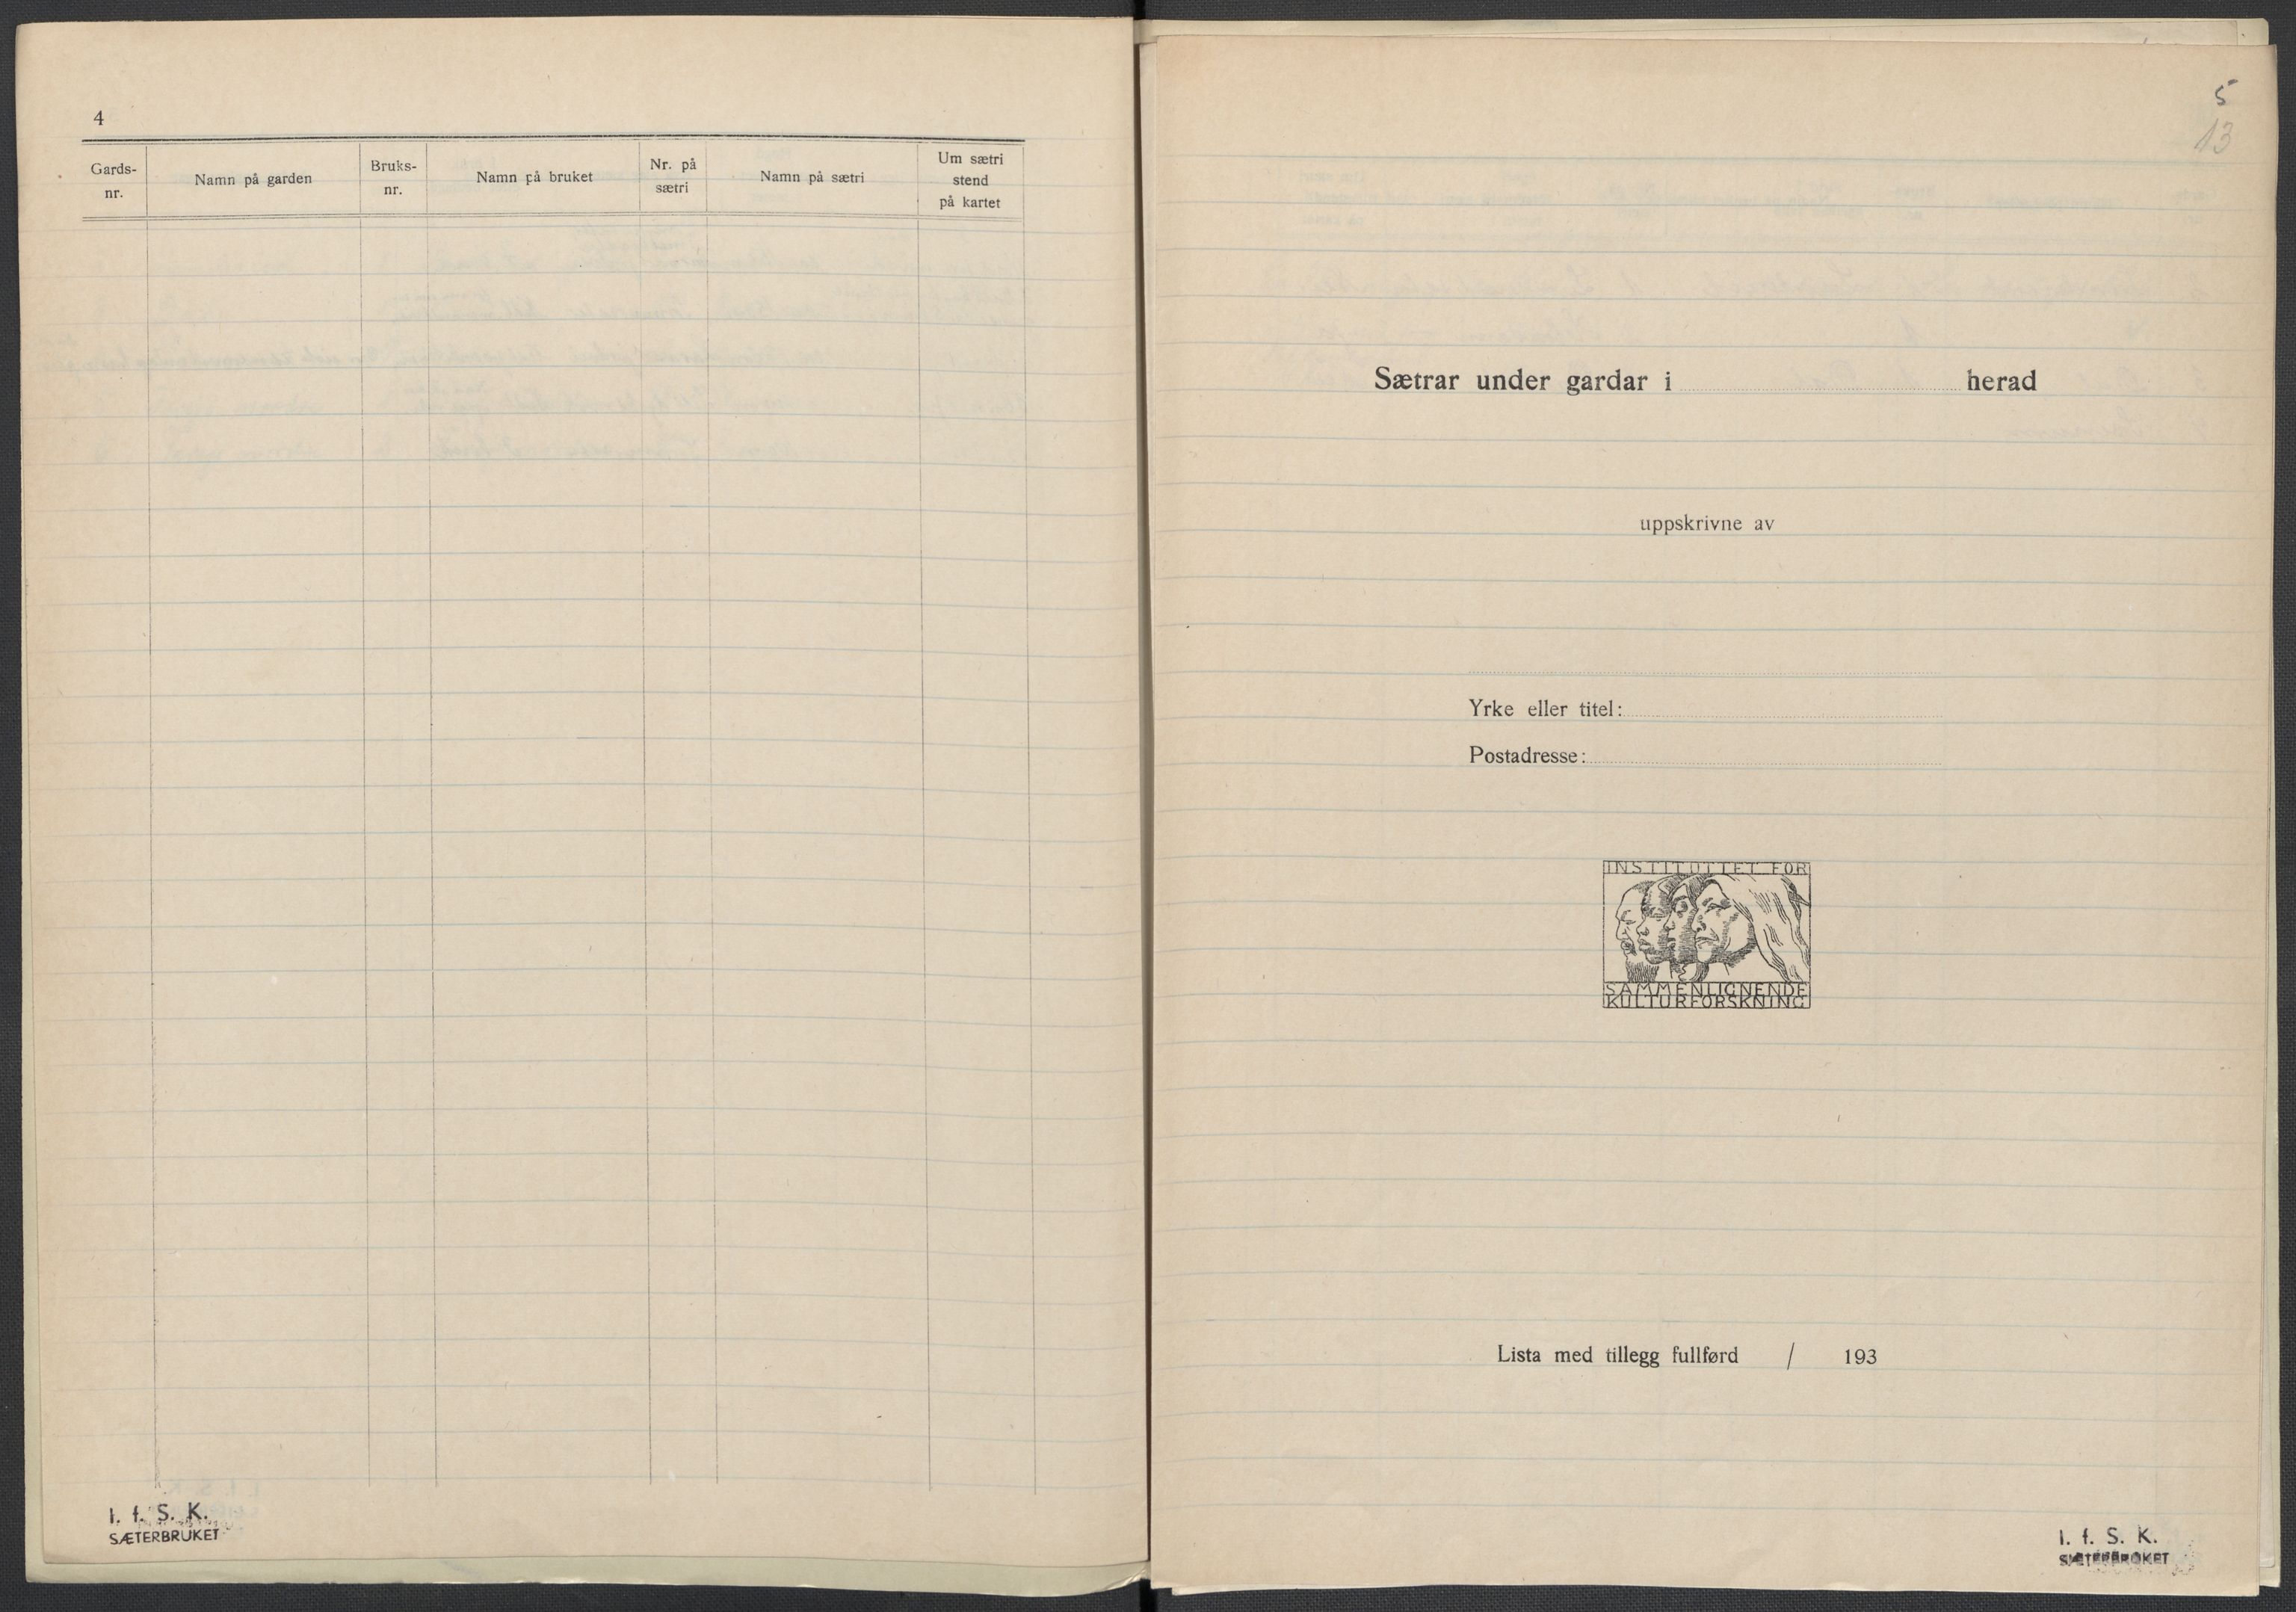 4
Gards-
nr.
Namn på garden
Bruks-
nr.
Namn på bruket
Nr. på
sætri
Namn på sætri
Um sætri
stend
på kartet
I. f. S. K.
SÆTERBRUKET
5
13
Sætrar under gardar i herad
uppskrivne av
Yrke eller titel:
Postadresse:
INSTITUTTET FOR
SAMMENLIGNENDE
KULTURFORSKNING
Lista med tillegg fullførd / 193
I. f. S. K.
SÆTERBRUKET